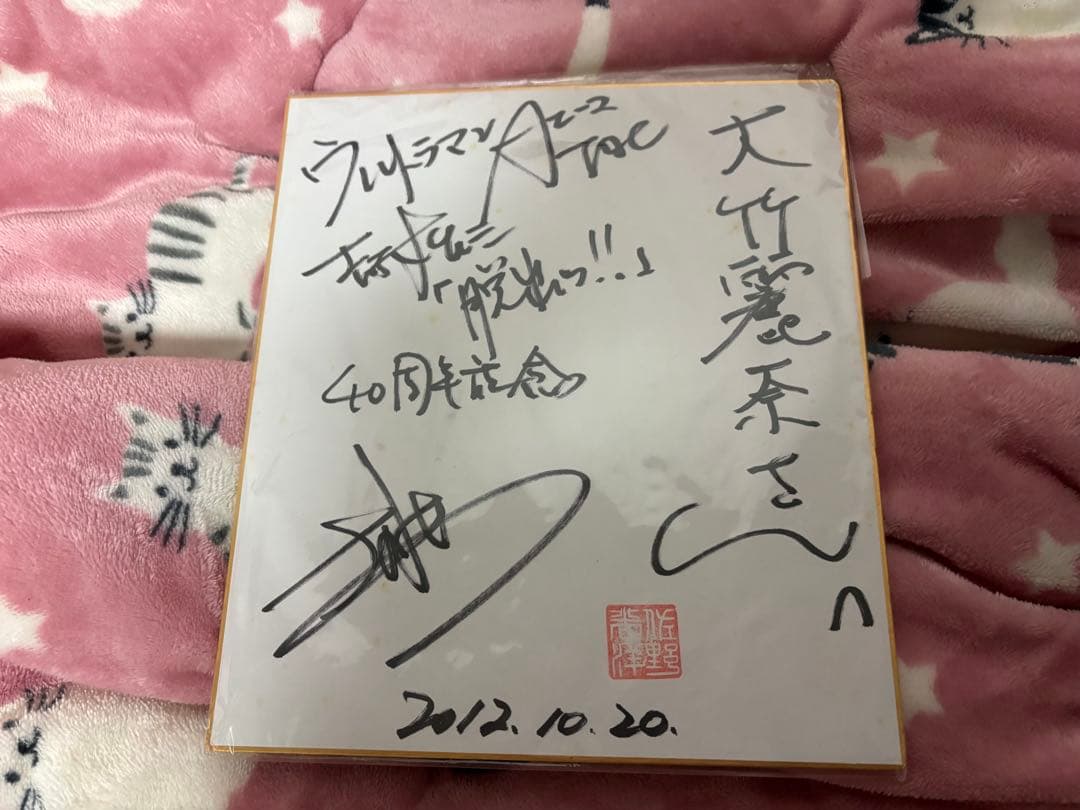 大竹麗奈さんへ
ウルトラマンA エース
TAC
吉村隊員
「脱出っ!!」
40周年記念
佐野
2012.10.20.